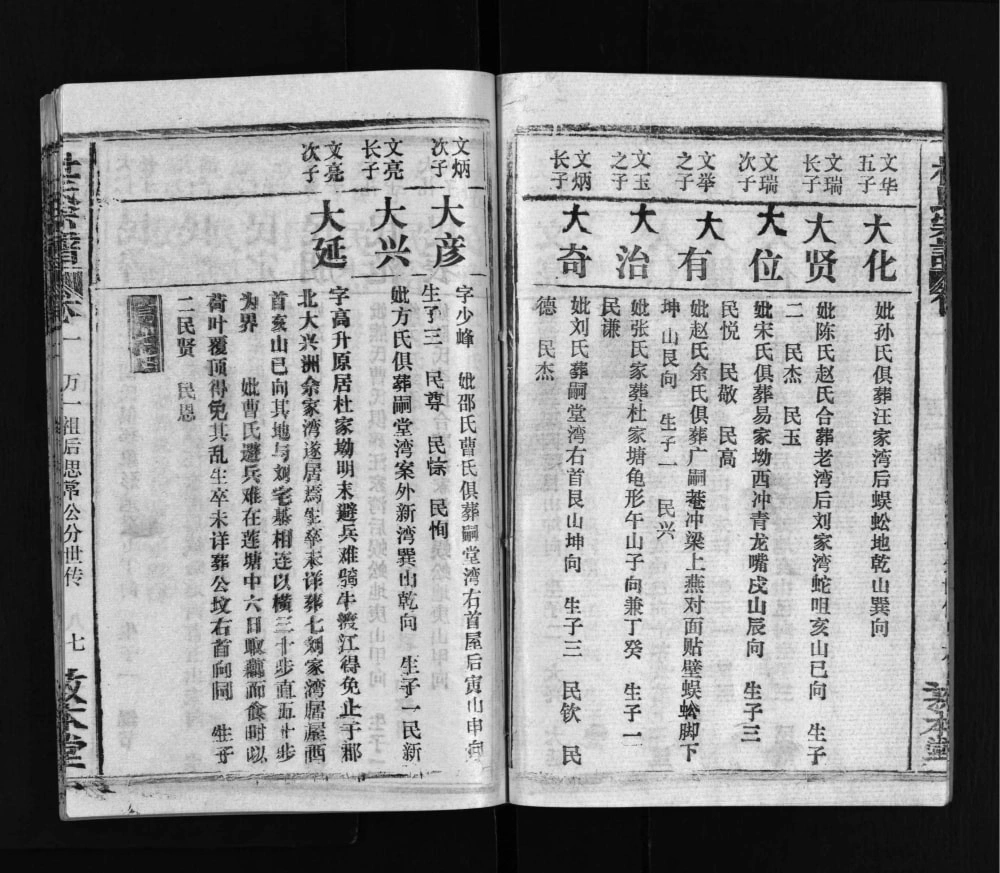 文华
五子
大化
妣孙氏俱葬汪家湾后蜈蚣地乾山巽向
文瑞
长子
大贤
妣陈氏赵氏合葬老湾后刘家湾蛇咀亥山巳向 生子
二 民杰 民玉
文瑞
次子
大位
妣宋氏俱葬易家坳西冲青龙嘴戌山辰向 生子三
民悦 民敬 民高
文举
之子
大有
妣赵氏余氏俱葬广嗣菴冲梁上燕对面贴壁蜈蚣脚下
坤山艮向 生子一 民兴
文玉
之子
大治
妣张氏家葬杜家塘龟形午山子向兼丁癸 生子一
民谦
文炳
长子
大奇
妣刘氏葬嗣堂湾右首艮山坤向 生子三 民钦 民
德 民杰
文炳
次子
大彦
字少峰 妣邵氏曹氏俱葬嗣堂湾右首屋后寅山申向
生子三 民尊 民悰 民恂
文亮
长子
大兴
妣方氏俱葬嗣堂湾案外新湾巽山乾向 生子一民新
文亮
次子
大延
字高升原居杜家坳明末避兵难骑牛渡江得免止于郡
北大兴洲余家湾遂居焉生卒未详葬七刘家湾居屋酉
首亥山巳向其地与刘宅基相连以横三十步直五十步
为界 妣曹氏避兵难在莲塘中六日取藕而食时以
荷叶覆顶得免其乱生卒未详葬公坟右首向同 生子
二民贤 民恩
杜氏宗谱
卷一
万一祖后思常公分世传
八七
敦本堂